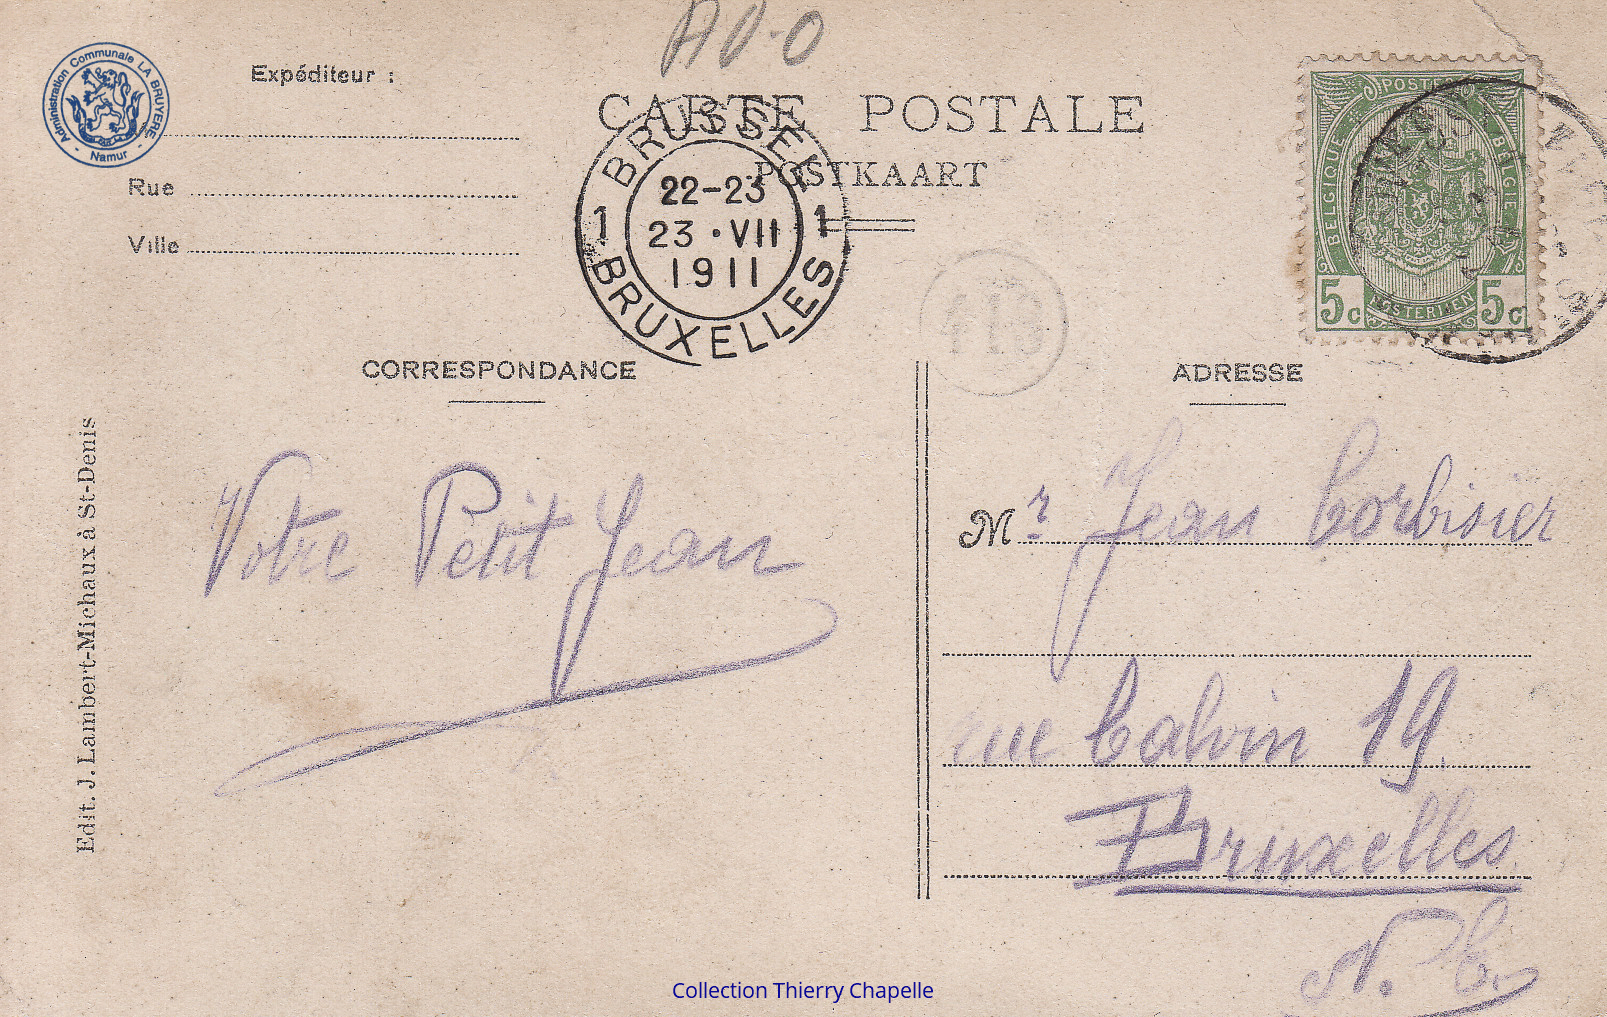 Administration Communale LA BRUYERE
- Namur -
Expéditeur :
Rue
Ville
CARTE POSTALE
POSTKAART
1 BRUSSEL 1
22-23
23 • VII
1911
BRUXELLES
413
POSTERIJEN
BELGIQUE
BELGIË
5c 5c
CORRESPONDANCE
ADRESSE
Votre Petit Jean
Mr Jean Corbisier
rue Calvin 19
Bruxelles
Edit. J. Lambert-Michaux à St-Denis
Collection Thierry Chapelle